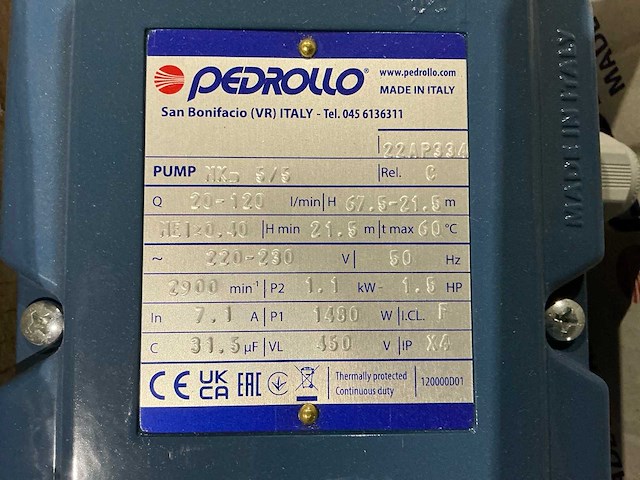 PEDROLLO® www.pedrollo.com
MADE IN ITALY
San Bonifacio (VR) ITALY - Tel. 045 6136311
22AP33A
PUMP 5/5 Rel. C
Q 20-120 l/min H 67.5-21.5 m
MEI≥0.40 H min 21.5 m t max 60 °C
~ 220-230 V 50 Hz
2900 min⁻¹ P2 1.1 kW - 1.5 HP
In 7.1 A P1 1480 W I.CL. F
C 31.5 µF VL 450 V IP X4
CE UK CA EAC Thermally protected
Continuous duty 120000D01
MADE IN ITALY
MADE